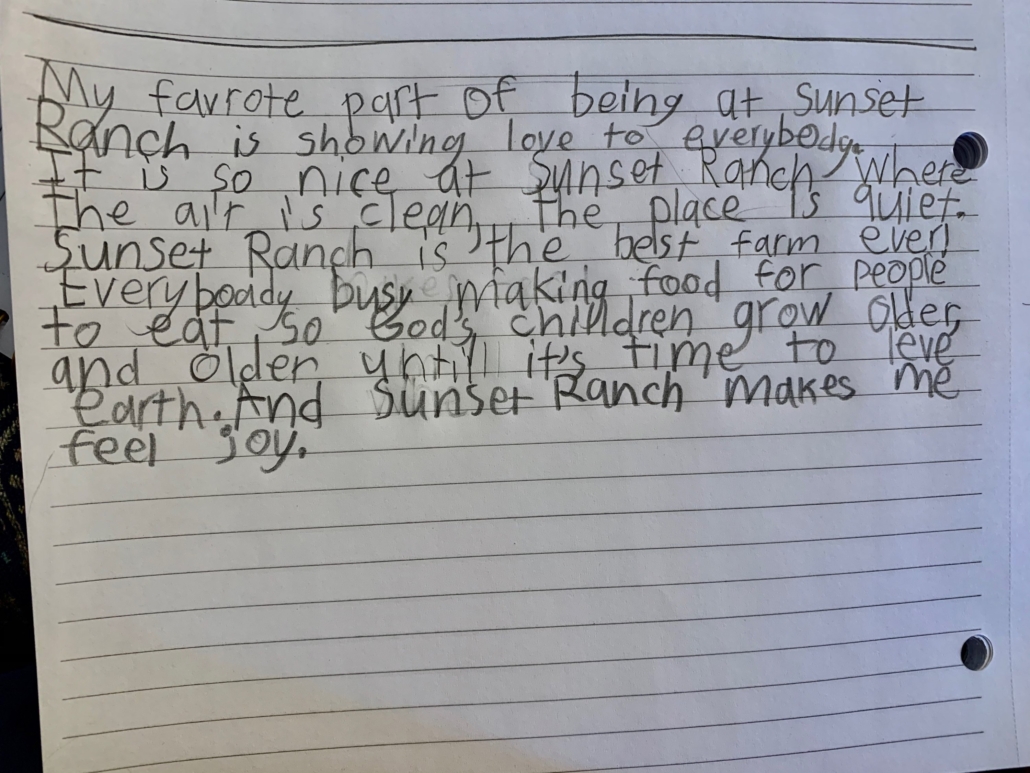 My favrote part of being at Sunset
Ranch is showing love to everybody.
It is so nice at Sunset Ranch, Where
the air is clean, the place is quiet.
Sunset Ranch is the belst farm ever!
Everyboady busy making food for people
to eat so God's children grow older,
and older untill it's time to leve
earth. And Sunset Ranch makes me
feel joy.